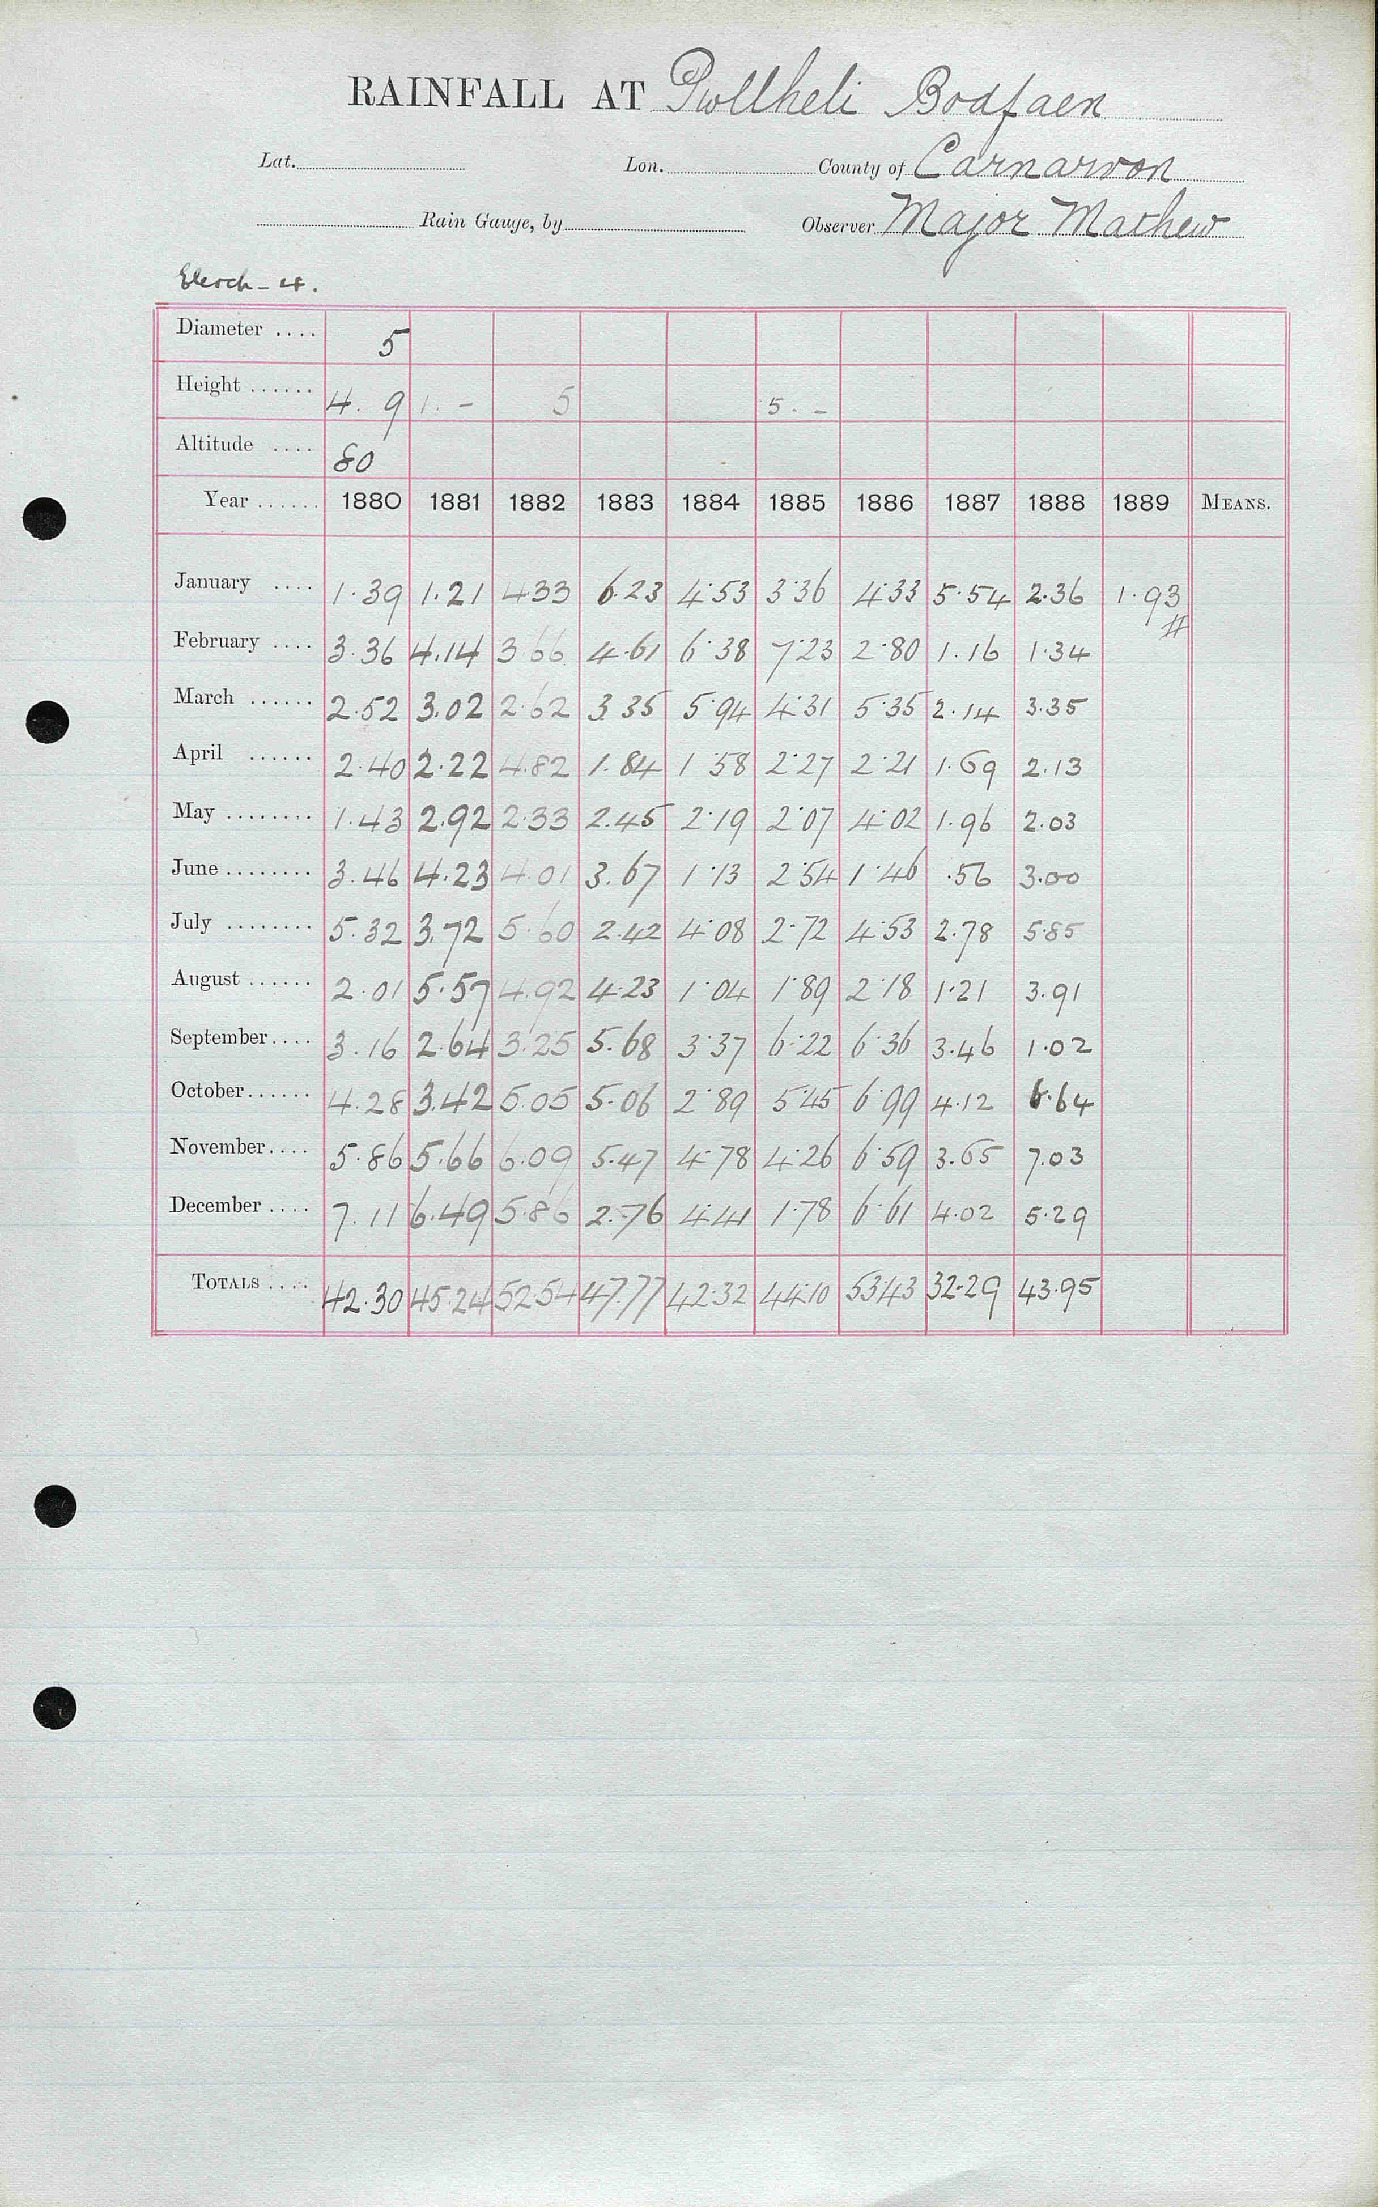 RAINFALL AT Pwllheli Bodfaen
Lat. Lon. County of Carnarvon
Rain Gauge, by Observer Major Mathew
Diameter .... 5
Height ...... 4. 9 1. - 5 5. -
Altitude .... 80
Year ...... 1880 1881 1882 1883 1884 1885 1886 1887 1888 1889 MEANS.
January .... 1.39 1.21 4.33 6.23 4.53 3.36 4.33 5.54 2.36 1.93
February .... 3.36 4.14 3.66 4.61 6.38 7.23 2.80 1.16 1.34 #
March ...... 2.52 3.02 2.62 3.35 5.94 4.31 5.35 2.14 3.35
April ...... 2.40 2.22 4.82 1.84 1.58 2.27 2.21 1.69 2.13
May ........ 1.43 2.92 2.33 2.45 2.19 2.07 4.02 1.96 2.03
June ........ 3.46 4.23 4.01 3.67 1.13 2.54 1.46 .56 3.00
July ........ 5.32 3.72 5.60 2.42 4.08 2.72 4.53 2.78 5.85
August ...... 2.01 5.57 4.92 4.23 1.04 1.89 2.18 1.21 3.91
September .... 3.16 2.64 3.25 5.68 3.37 6.22 6.36 3.46 1.02
October ...... 4.28 3.42 5.05 5.06 2.89 5.45 6.99 4.12 6.64
November .... 5.86 5.66 6.09 5.47 4.78 4.26 6.59 3.65 7.03
December .... 7.11 6.49 5.86 2.76 4.41 1.78 6.61 4.02 5.29
TOTALS .... 42.30 45.24 52.54 47.77 42.32 44.10 53.43 32.29 43.95